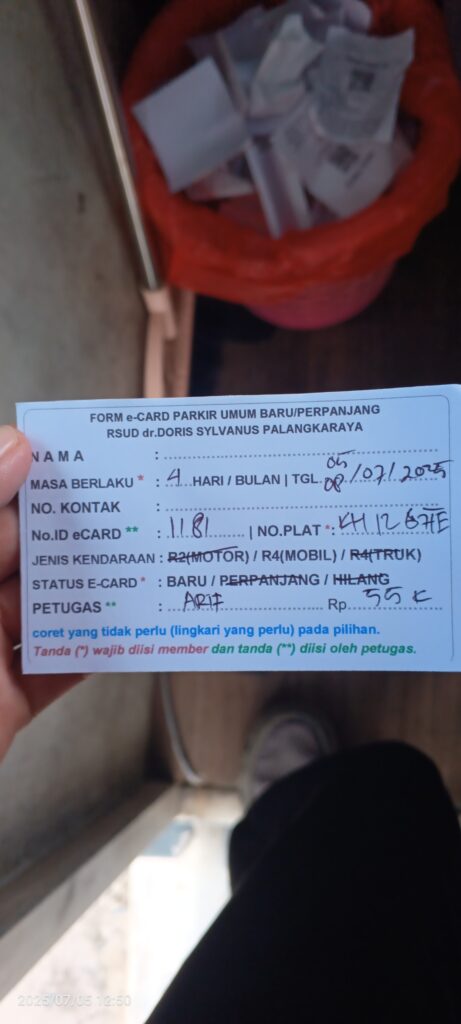 FORM e-CARD PARKIR UMUM BARU/PERPANJANG
RSUD dr.DORIS SYLVANUS PALANGKARAYA
NAMA :
MASA BERLAKU * : 4 HARI / BULAN | TGL. 05 08 /07/2025
NO. KONTAK :
No.ID eCARD ** : 1181 | NO.PLAT *: KH 12
JENIS KENDARAAN : R2(MOTOR) / R4(MOBIL) / R4(TRUK)
STATUS E-CARD * : BARU / PERPANJANG / HILANG
PETUGAS ** : ARIF Rp. 55 K
coret yang tidak perlu (lingkari yang perlu) pada pilihan.
Tanda (*) wajib diisi member dan tanda (**) diisi oleh petugas.
2025/07/05 12:50